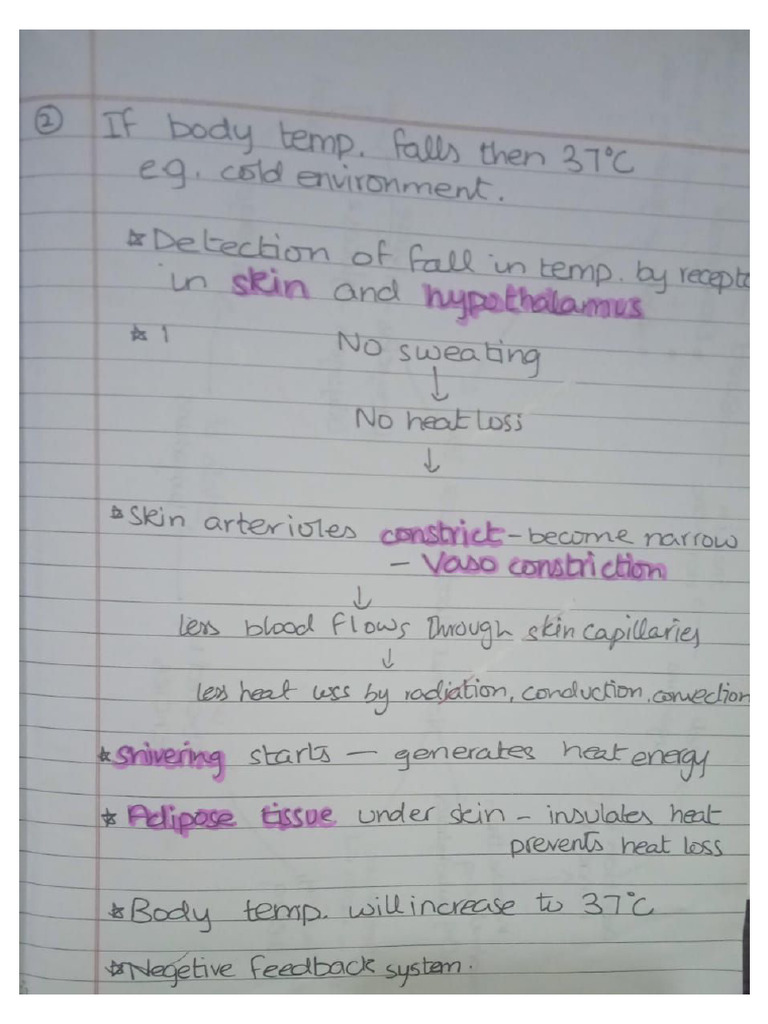 ② If body temp. falls then 37°C
e.g. cold environment.
☆ Detection of fall in temp. by recepto
in skin and hypothalamus
☆ 1 No sweating
↓
No heat loss
↓
☆ Skin arterioles constrict - become narrow
- Vaso constriction
↓
less blood flows through skin capillaries
↓
less heat loss by radiation, conduction, convection
☆ Shivering starts — generates heat energy
☆ Adipose tissue under skin - insulates heat
prevents heat loss
☆ Body temp. will increase to 37°C
☆ Negetive feedback system.